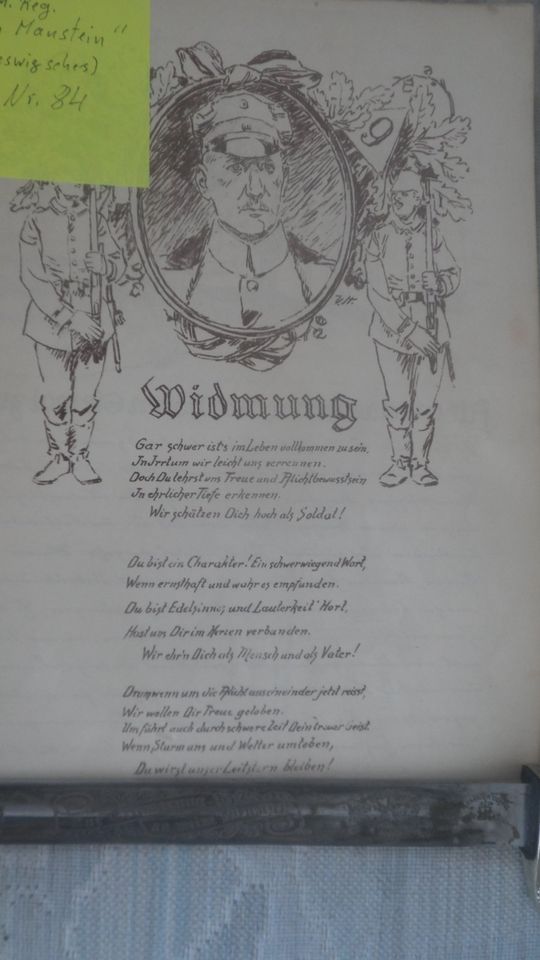 M. Reg.
Manstein"
schers)
Nr. 84
9
Widmung
Gar schwer ist's im Leben vollkommen zu sein,
In Irrtum wir leicht uns verrennen.
Doch Du lehrst uns Treue und Pflichtbewusstsein
In ehrlicher Tiefe erkennen.
Wir schätzen Dich hoch als Soldat!
Du bist ein Charakter! Ein schwerwiegend Wort,
Wenn ernsthaft und wahr es empfunden.
Du bist Edelsinns und Lauterkeit Hort,
Hast uns Dir im Herzen verbunden.
Wir ehr'n Dich als Mensch und als Vater!
Drum wenn uns die Pflicht auseinander jetzt reisst,
Wir wollen Dir Treue geloben.
Uns führt auch durch schwere Zeit Dein Geist.
Wenn Sturm uns und Wetter umtoben,
Du wirst unser Leitstern bleiben!